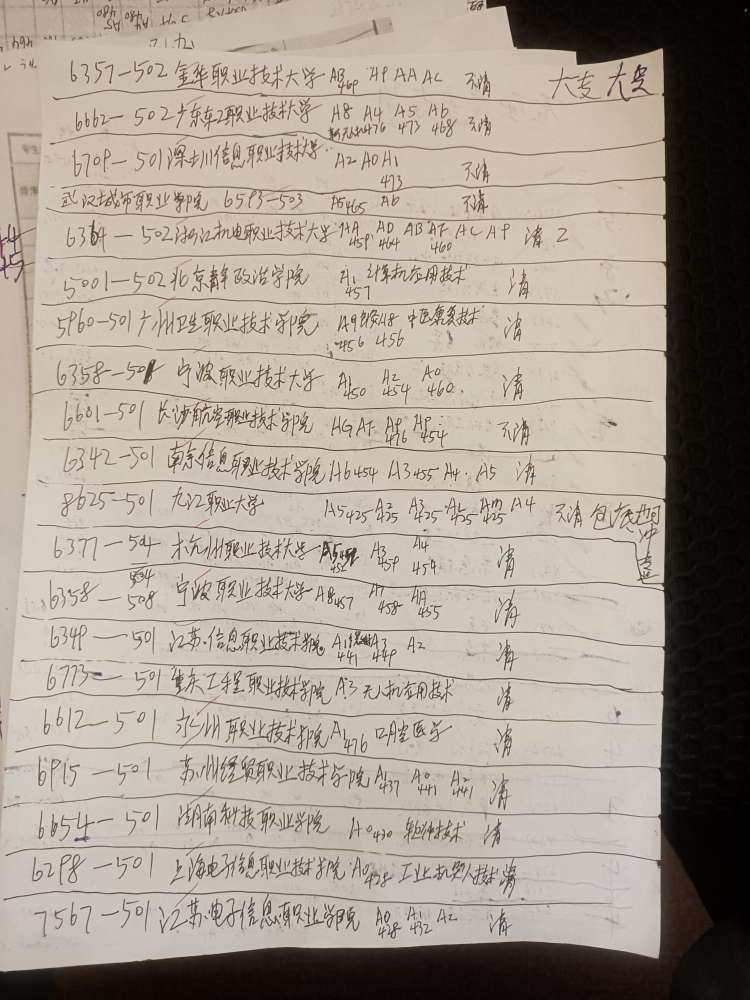 6357—502 金华职业技术大学 AB469 AP AA AC 不清 大专 大专
6662—502 广东轻工职业技术大学 A8 A4476 A5473 A6468 不清
6709—501 深圳信息职业技术大学 A2 A0 A1473 不清
武汉城市职业学院 6593—503 A5465 A6 不清
6364—502 浙江机电职业技术大学 AA459 AD464 AB AF460 AC AP 清 2
5001—502 北京青年政治学院 A1457 计算机应用技术 清
5960—501 广州卫生职业技术学院 A9456 A8456 中医康复技术 清
6358—501 宁波职业技术大学 A1450 A2454 A0460 清
6601—501 长沙航空职业技术学院 AG AF AP476 AP454 不清
6342—501 南京信息职业技术学院 A6454 A3455 A4 A5 清
8625—501 九江职业大学 A5425 A2425 A3425 A1425 AM425 A4 不清 包底 冲专业
6377—504 杭州职业技术大学 A3459 A4459 清
6358—508 宁波职业技术大学 A8457 A7458 AA455 清
6349—501 江苏信息职业技术学院 A1441 A3449 A2 清
6773—501 重庆工程职业技术学院 A3 无人机应用技术 清
6612—501 永州职业技术学院 A1476 口腔医学 清
6915—501 苏州经贸职业技术学院 A1437 A0441 A2441 清
6654—501 湖南科技职业学院 A0430 软件技术 清
6298—501 上海电子信息职业技术学院 A0428 工业机器人技术 清
7567—501 江苏电子信息职业学院 A0428 A1432 A2 清